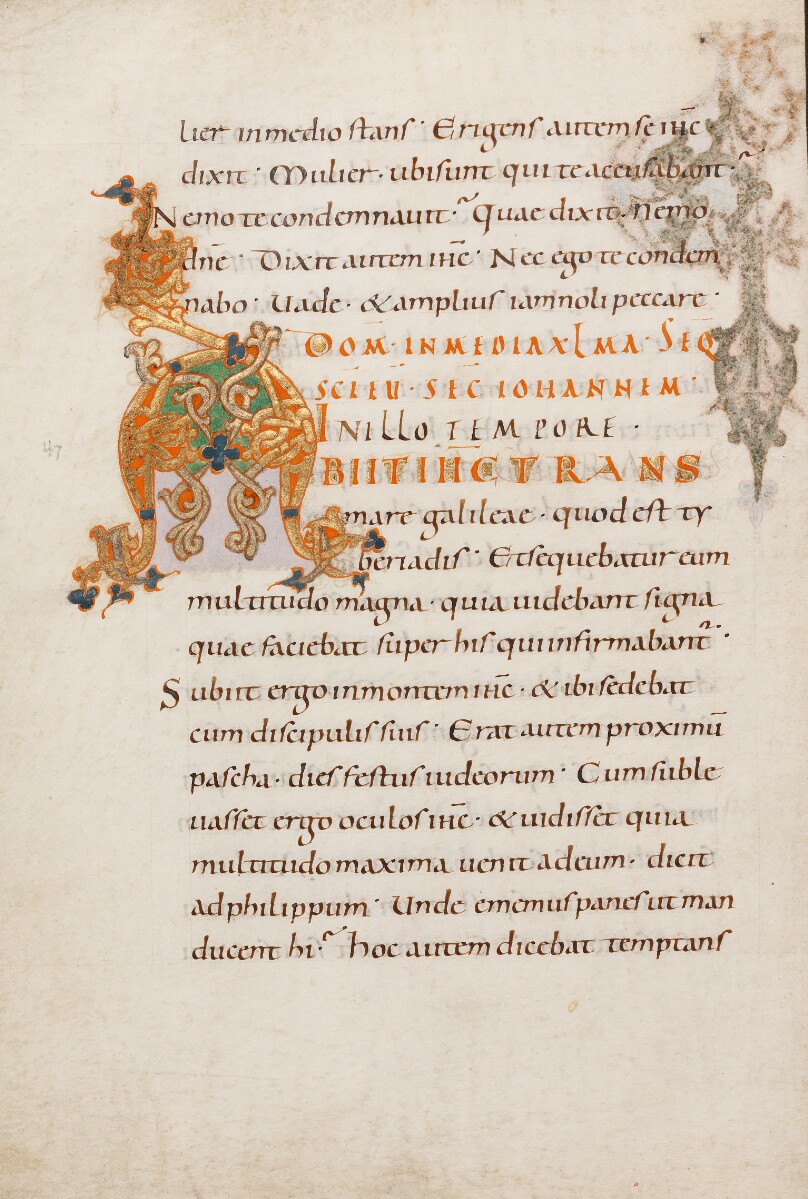 lier in medio stans · Erigens autem se ihc̄
dixit · Mulier · ubi sunt qui te accusabant ·
Nemo te condemnauit · Quae dixit · Nemo
dnē · Dixit autem ihc̄ · Nec ego te condem
nabo · Uade · & amplius iam noli peccare ·
DOM̄ · IN MEDIA XLMA · SEQ̄
SC̄I EŪ · SEC̄ IOHANNEM ·
IN ILLO TEMPORE ·
ABIIT IHC̄ TRANS
mare galileae · quod est ty
beriadis · Et sequebatur eum
multitudo magna · quia uidebant signa
quae faciebat super his qui infirmabant᷑ ·
Subiit ergo in montem ihc̄ · & ibi sedebat
cum discipulis suis · Erat autem proximū
pascha · dies festus iudeorum · Cum suble
uasset ergo oculos ihc̄ · & uidisset quia
multitudo maxima uenit ad eum · dicit
ad philippum · Unde ememus panes ut man
ducent hi · hoc autem dicebat temptans
47